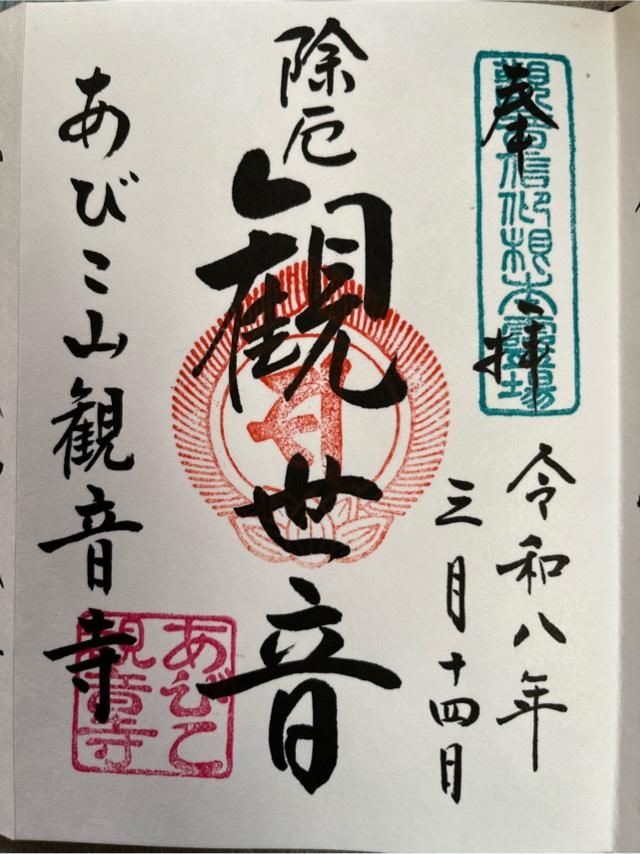 奉拝
観音信仰根本霊場
令和八年
三月十四日
除厄
観世音
あびこ山観音寺
あびこ
観音寺